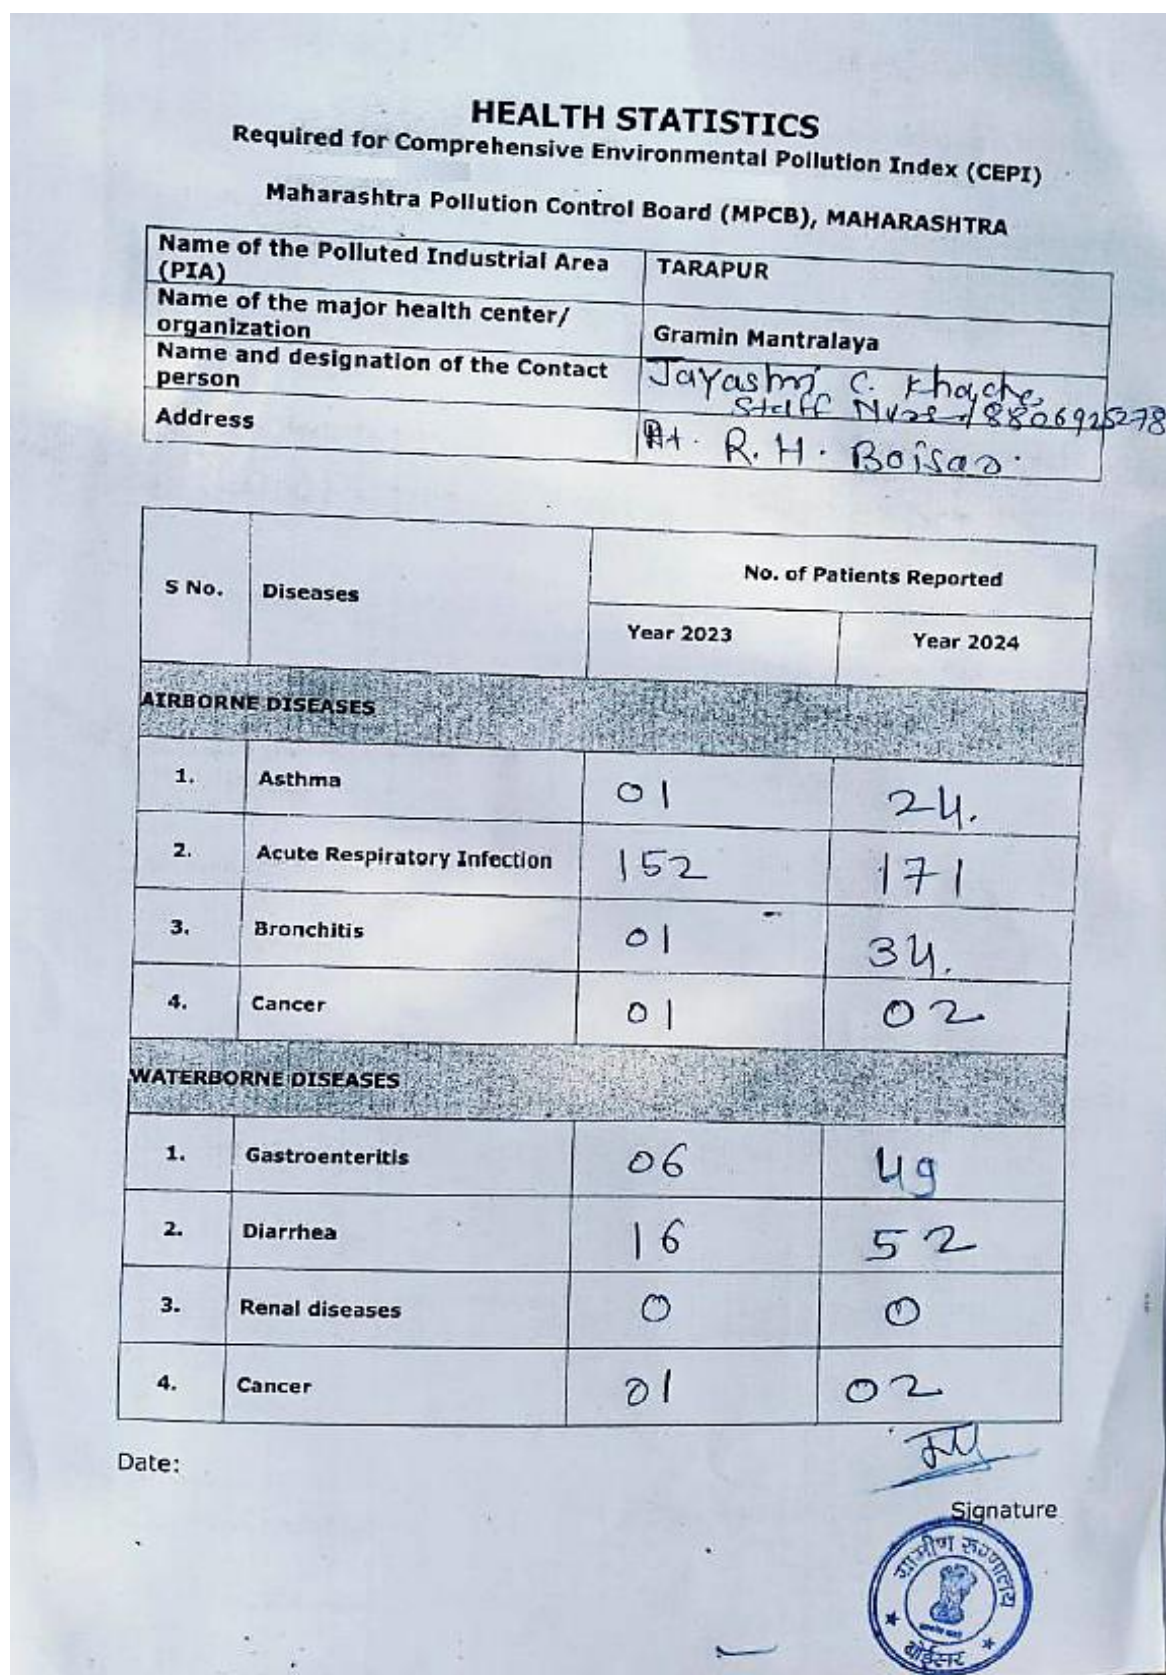 HEALTH STATISTICS
Required for Comprehensive Environmental Pollution Index (CEPI)
Maharashtra Pollution Control Board (MPCB), MAHARASHTRA
Name of the Polluted Industrial Area (PIA) TARAPUR
Name of the major health center/ organization Gramin Mantralaya
Name and designation of the Contact person Jayashri C. Khache,
Staff Nurse / 8806925278
Address At. R. H. Boisar.
S No. Diseases No. of Patients Reported
Year 2023 Year 2024
AIRBORNE DISEASES
1. Asthma 01 24.
2. Acute Respiratory Infection 152 171
3. Bronchitis 01 34.
4. Cancer 01 02
WATERBORNE DISEASES
1. Gastroenteritis 06 49
2. Diarrhea 16 52
3. Renal diseases 0 0
4. Cancer 01 02
Date:
Signature
ग्रामीण रुग्णालय
बोईसर